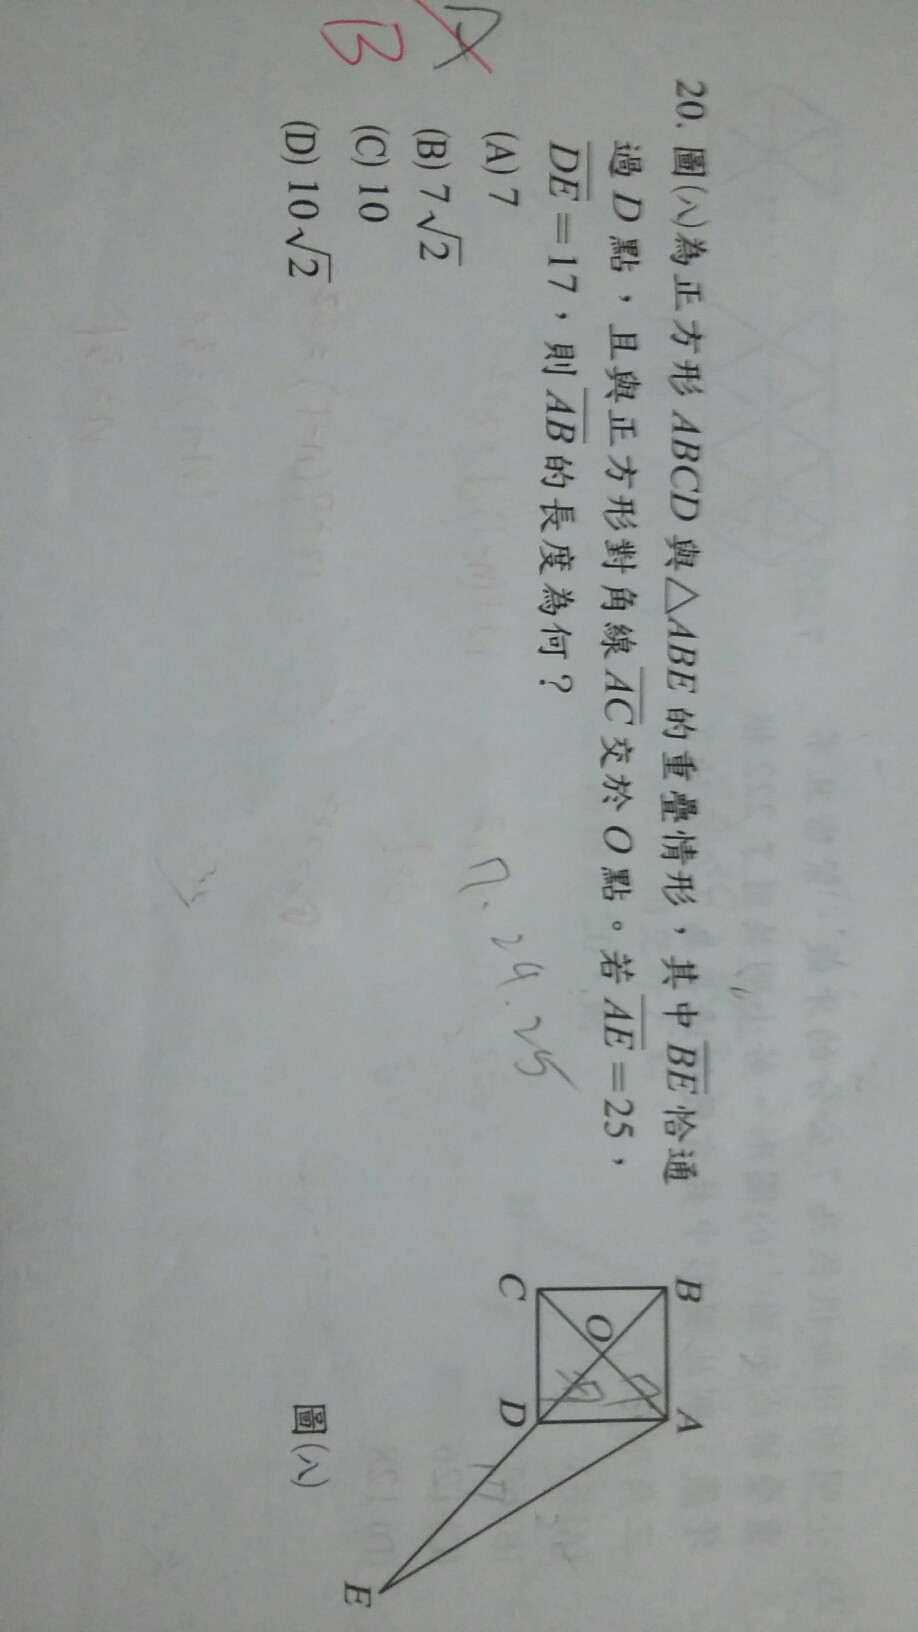 20. 圖(八)為正方形ABCD與△ABE的重疊情形，其中BE恰通
過D點，且與正方形對角線AC交於O點。若AE=25，
DE=17，則AB的長度為何？
(A) 7
(B) 7√2
(C) 10
(D) 10√2
A
B
7. 24. 25
B
A
O
7
C
D
E
圖(八)